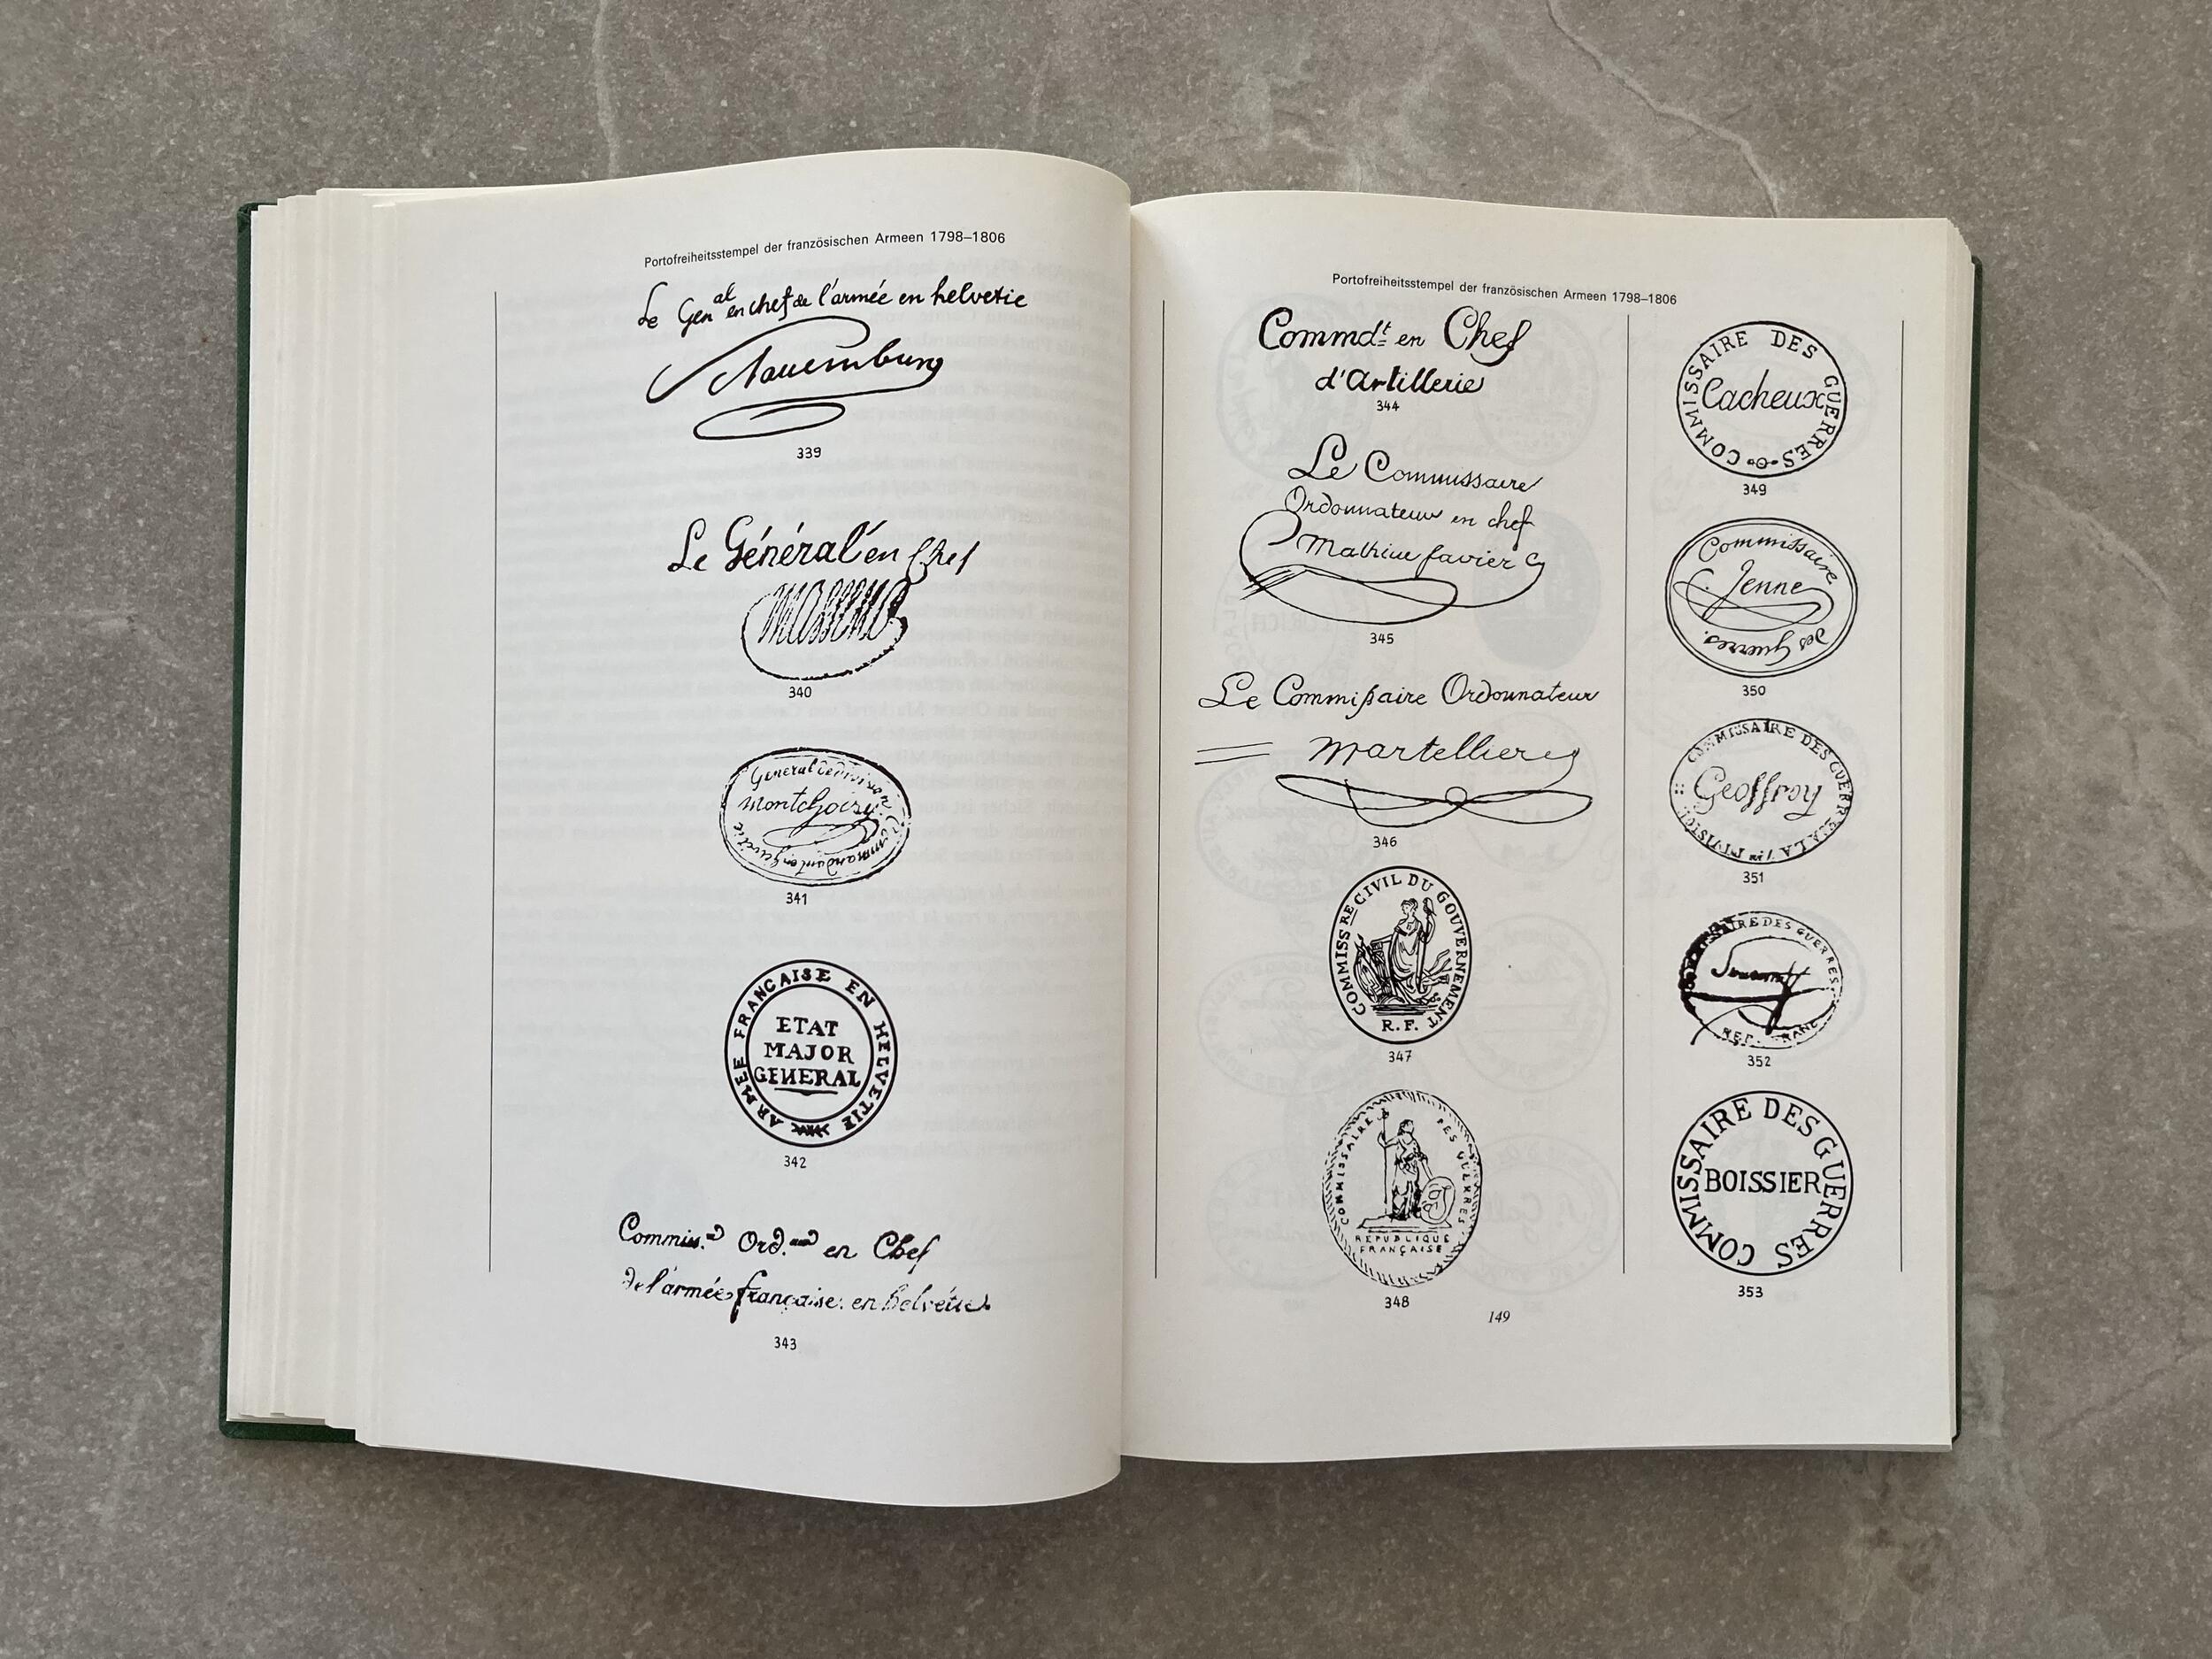 Portofreiheitsstempel der französischen Armeen 1798–1806
Le Gen^al en chef de l'armée en helvetie
Nauemburg
339
Le Général en Chef
massena
340
General de division
montchoisy
Commandant en helvetie
341
ARMÉE FRANCAISE EN HELVETIE
ETAT
MAJOR
GENERAL
342
Commiss. Ord. en Chef
de l'armée française en helvétie.
343
Portofreiheitsstempel der französischen Armeen 1798–1806
Commd^t en Chef
d'Artillerie
344
Le Commissaire
Ordonnateur en chef
Mathieu favier
345
Le Commißaire Ordonnateur
Martellier
346
COMMISSRE CIVIL DU GOUVERNEMENT
R.F.
347
COMMISSAIRE DES GUERRES
REPUBLIQUE
FRANÇAISE
348
COMMISSAIRE DES GUERRES
Cacheux
349
Commissaire
Jenne
des Guerres.
350
COMMISSAIRE DES GUERR
Geoffroy
351
AIRE DES GUERRES
352
COMMISSAIRE DES GUERRES
BOISSIER
353
149